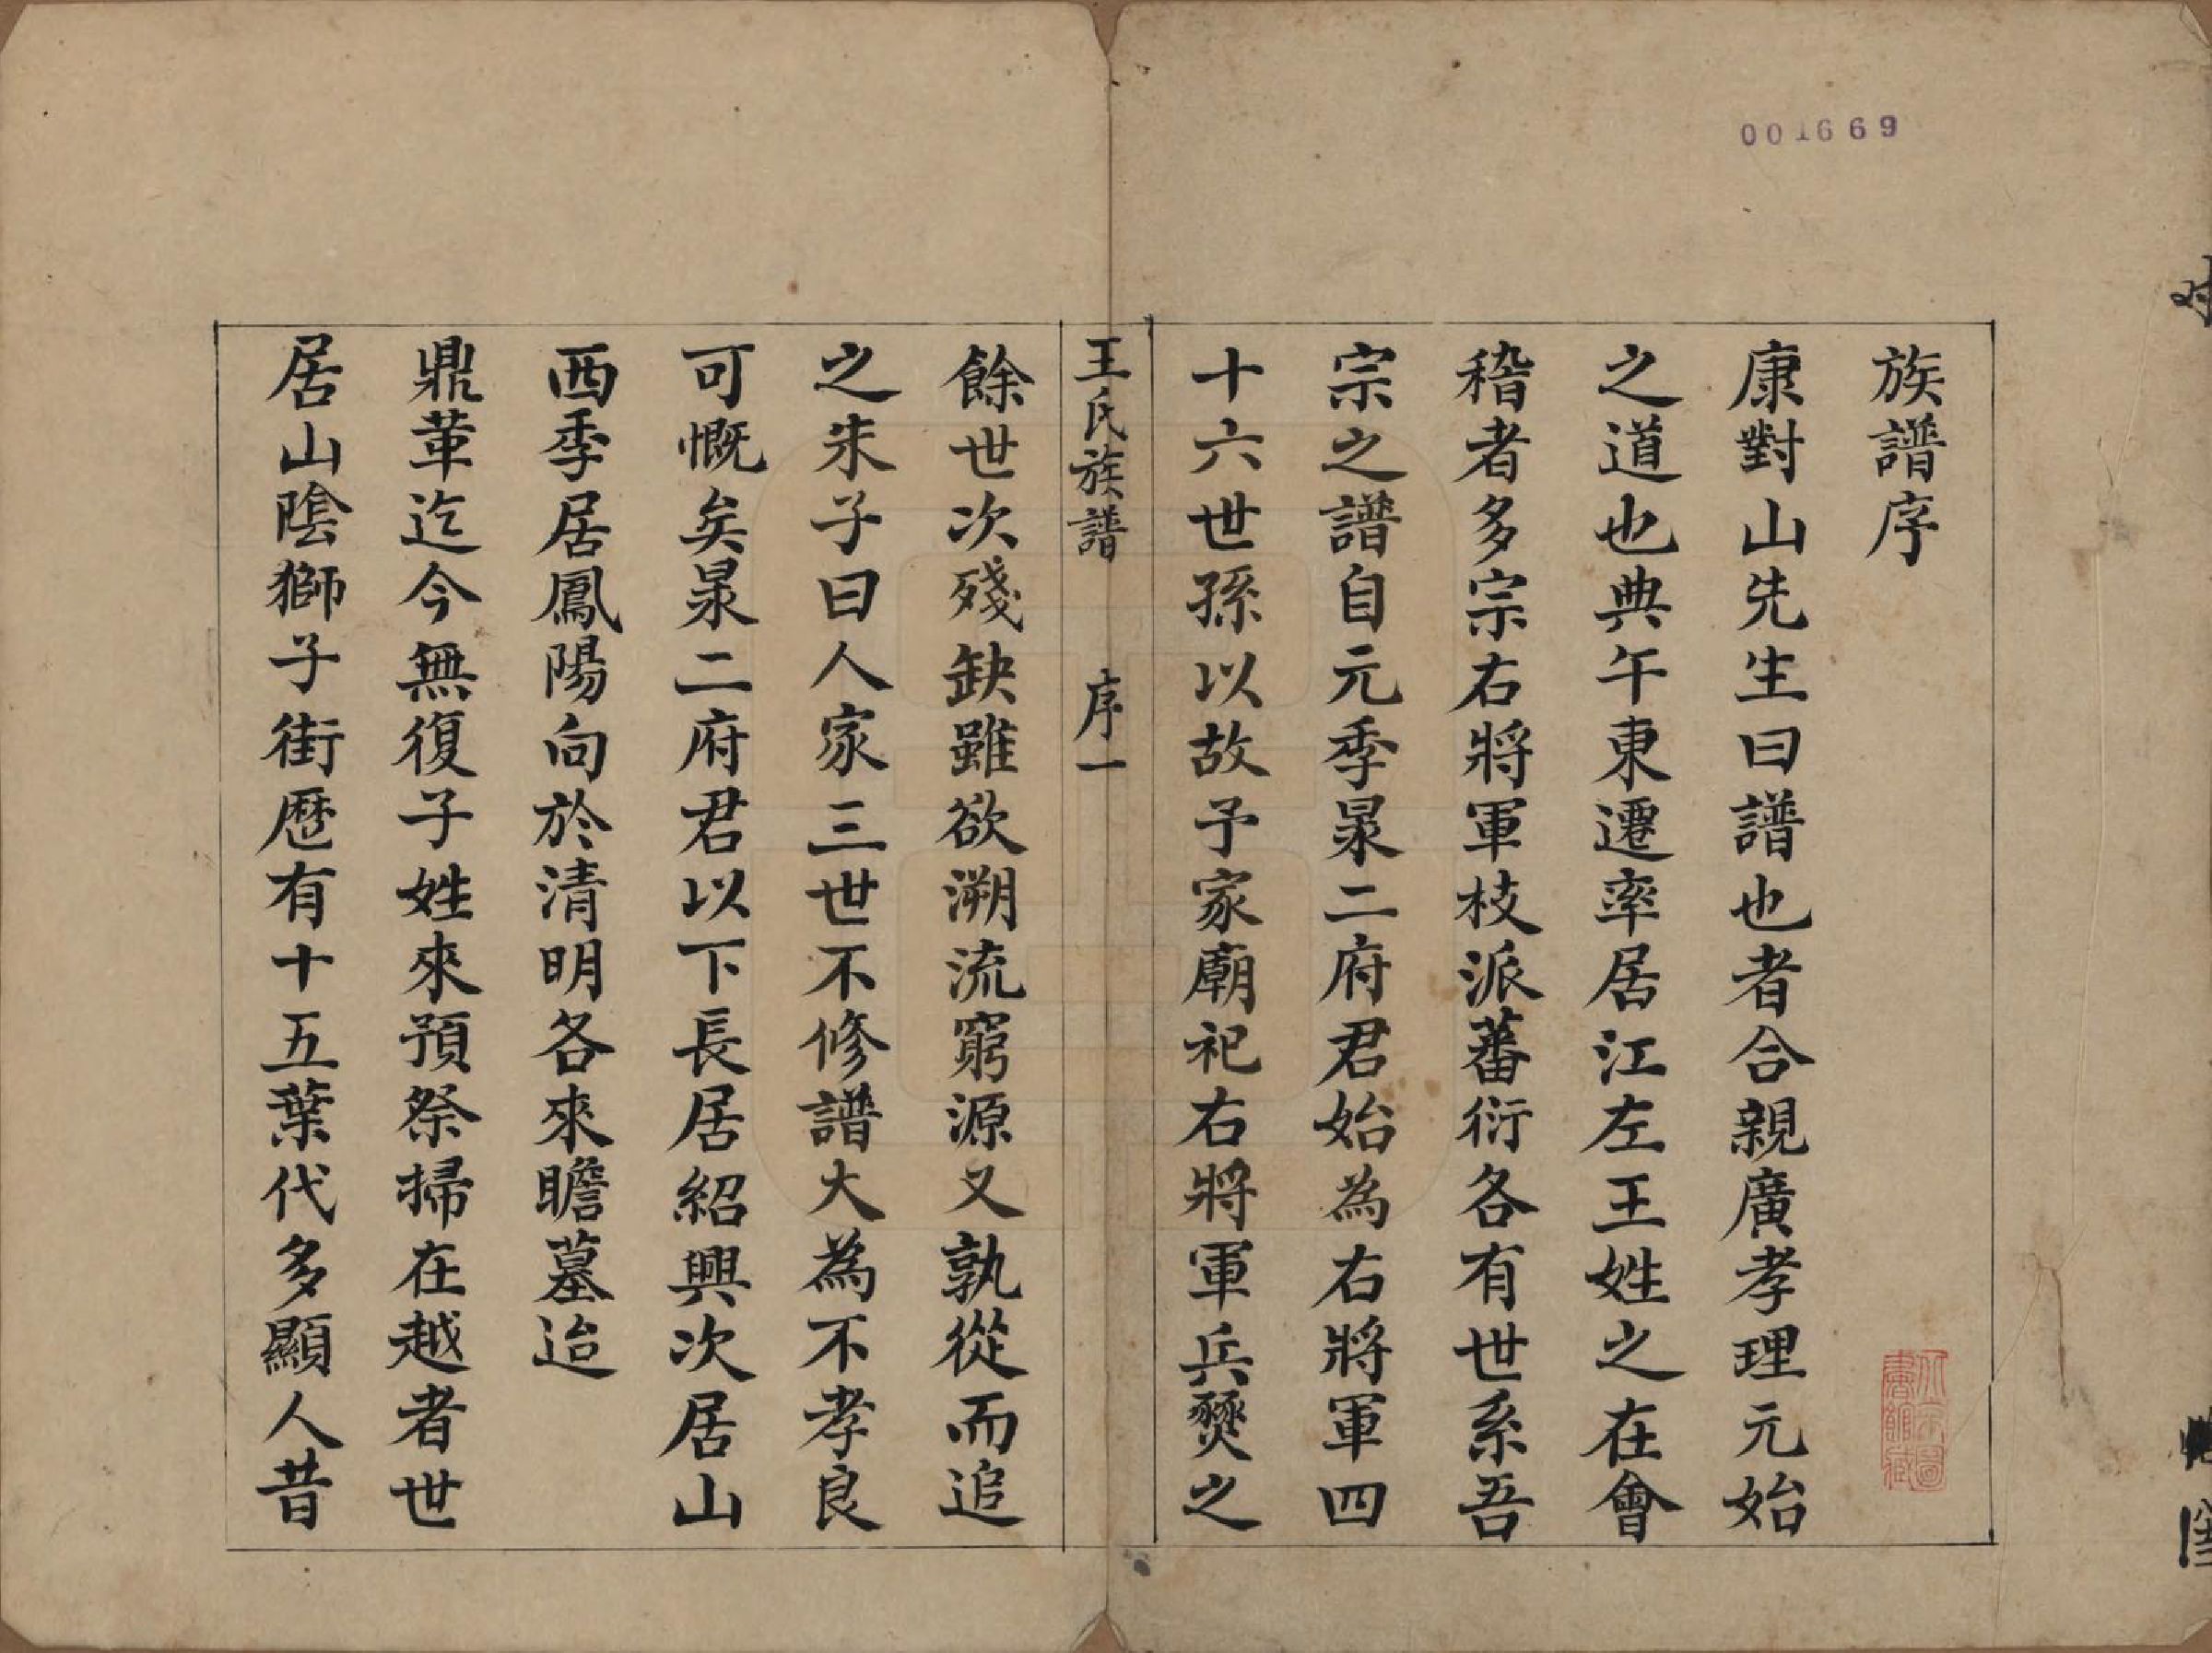 001669
族譜序
康對山先生曰譜也者合親廣孝理元始
之道也典午東遷率居江左王姓之在會
稽者多宗右將軍枝派蕃衍各有世系吾
宗之譜自元季泉二府君始為右將軍四
十六世孫以故予家廟祀右將軍兵燹之
王氏族譜 序一
餘世次殘缺雖欲溯流窮源又孰從而追
之朱子曰人家三世不修譜大為不孝良
可慨矣泉二府君以下長居紹興次居山
西季居鳳陽向於清明各來瞻墓迨
鼎革迄今無復子姓來預祭掃在越者世
居山陰獅子街歷有十五葉代多顯人昔